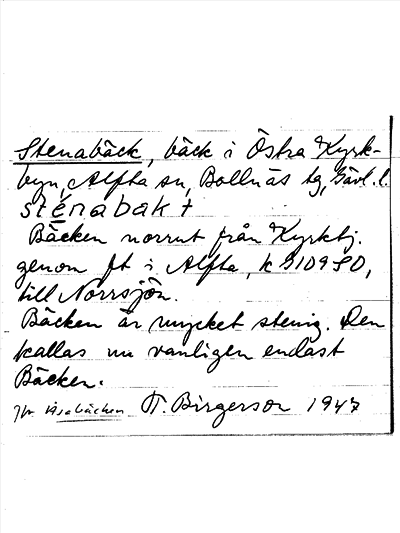 Stenabäck, bäck i Östra Kyrk-
byn, Alfta sn, Bollnäs tg, Gävl. l.
sténabäkt
Bäcken norrut från Kyrkbj.
genom ft i Alfta, k 3109 SO,
till Norrsjön.
Bäcken är mycket stenig. Den
kallas nu vanligen endast
Bäcken.
Jfr Åsabäcken T. Birgerson 1947